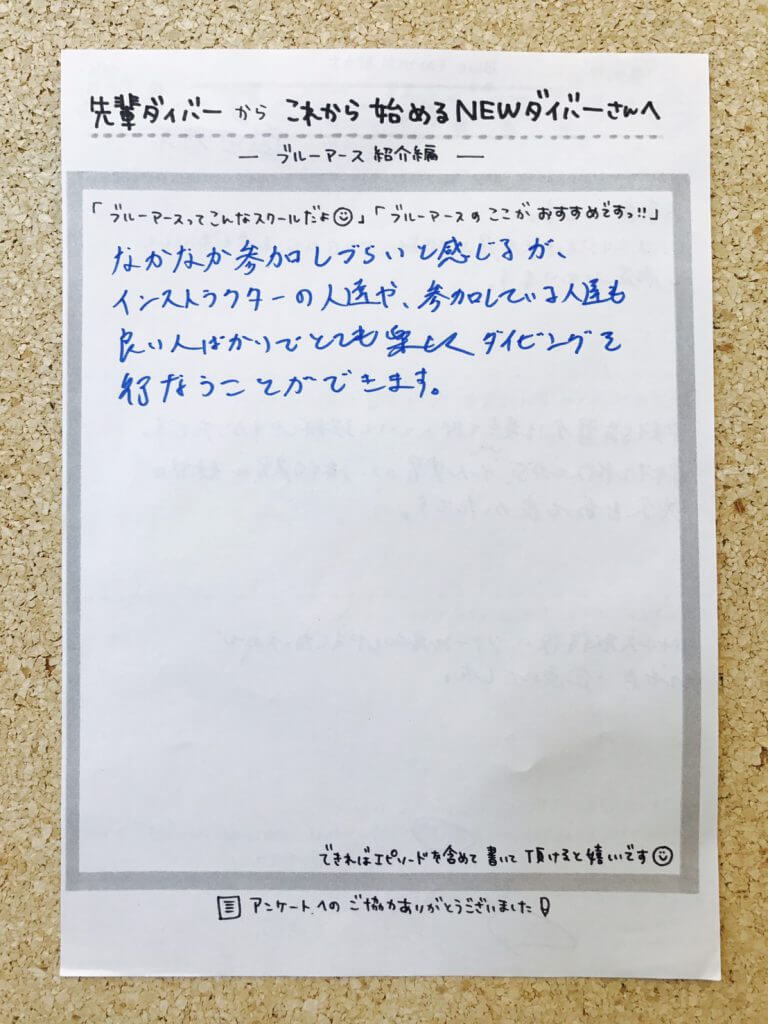 先輩ダイバーから これから 始めるNEWダイバーさんへ
ー ブルーアース 紹介編 ー
「ブルーアースってこんなスクールだよ☺」「ブルーアースの ここが おすすめですっ!!」
なかなか参加しづらいと感じるが、
インストラクターの人達や、参加している人達も
良い人ばかりでとても楽しく ダイビングを
行なうことができます。
できればエピソードを含めて 書いて 頂けると嬉しいです☺
アンケートへの ご協力ありがとうございました